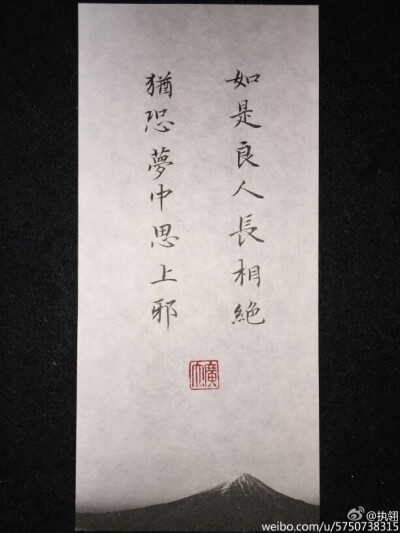 如是良人長相絶
猶恐夢中思上邪
@执翎
weibo.com/u/5750738315